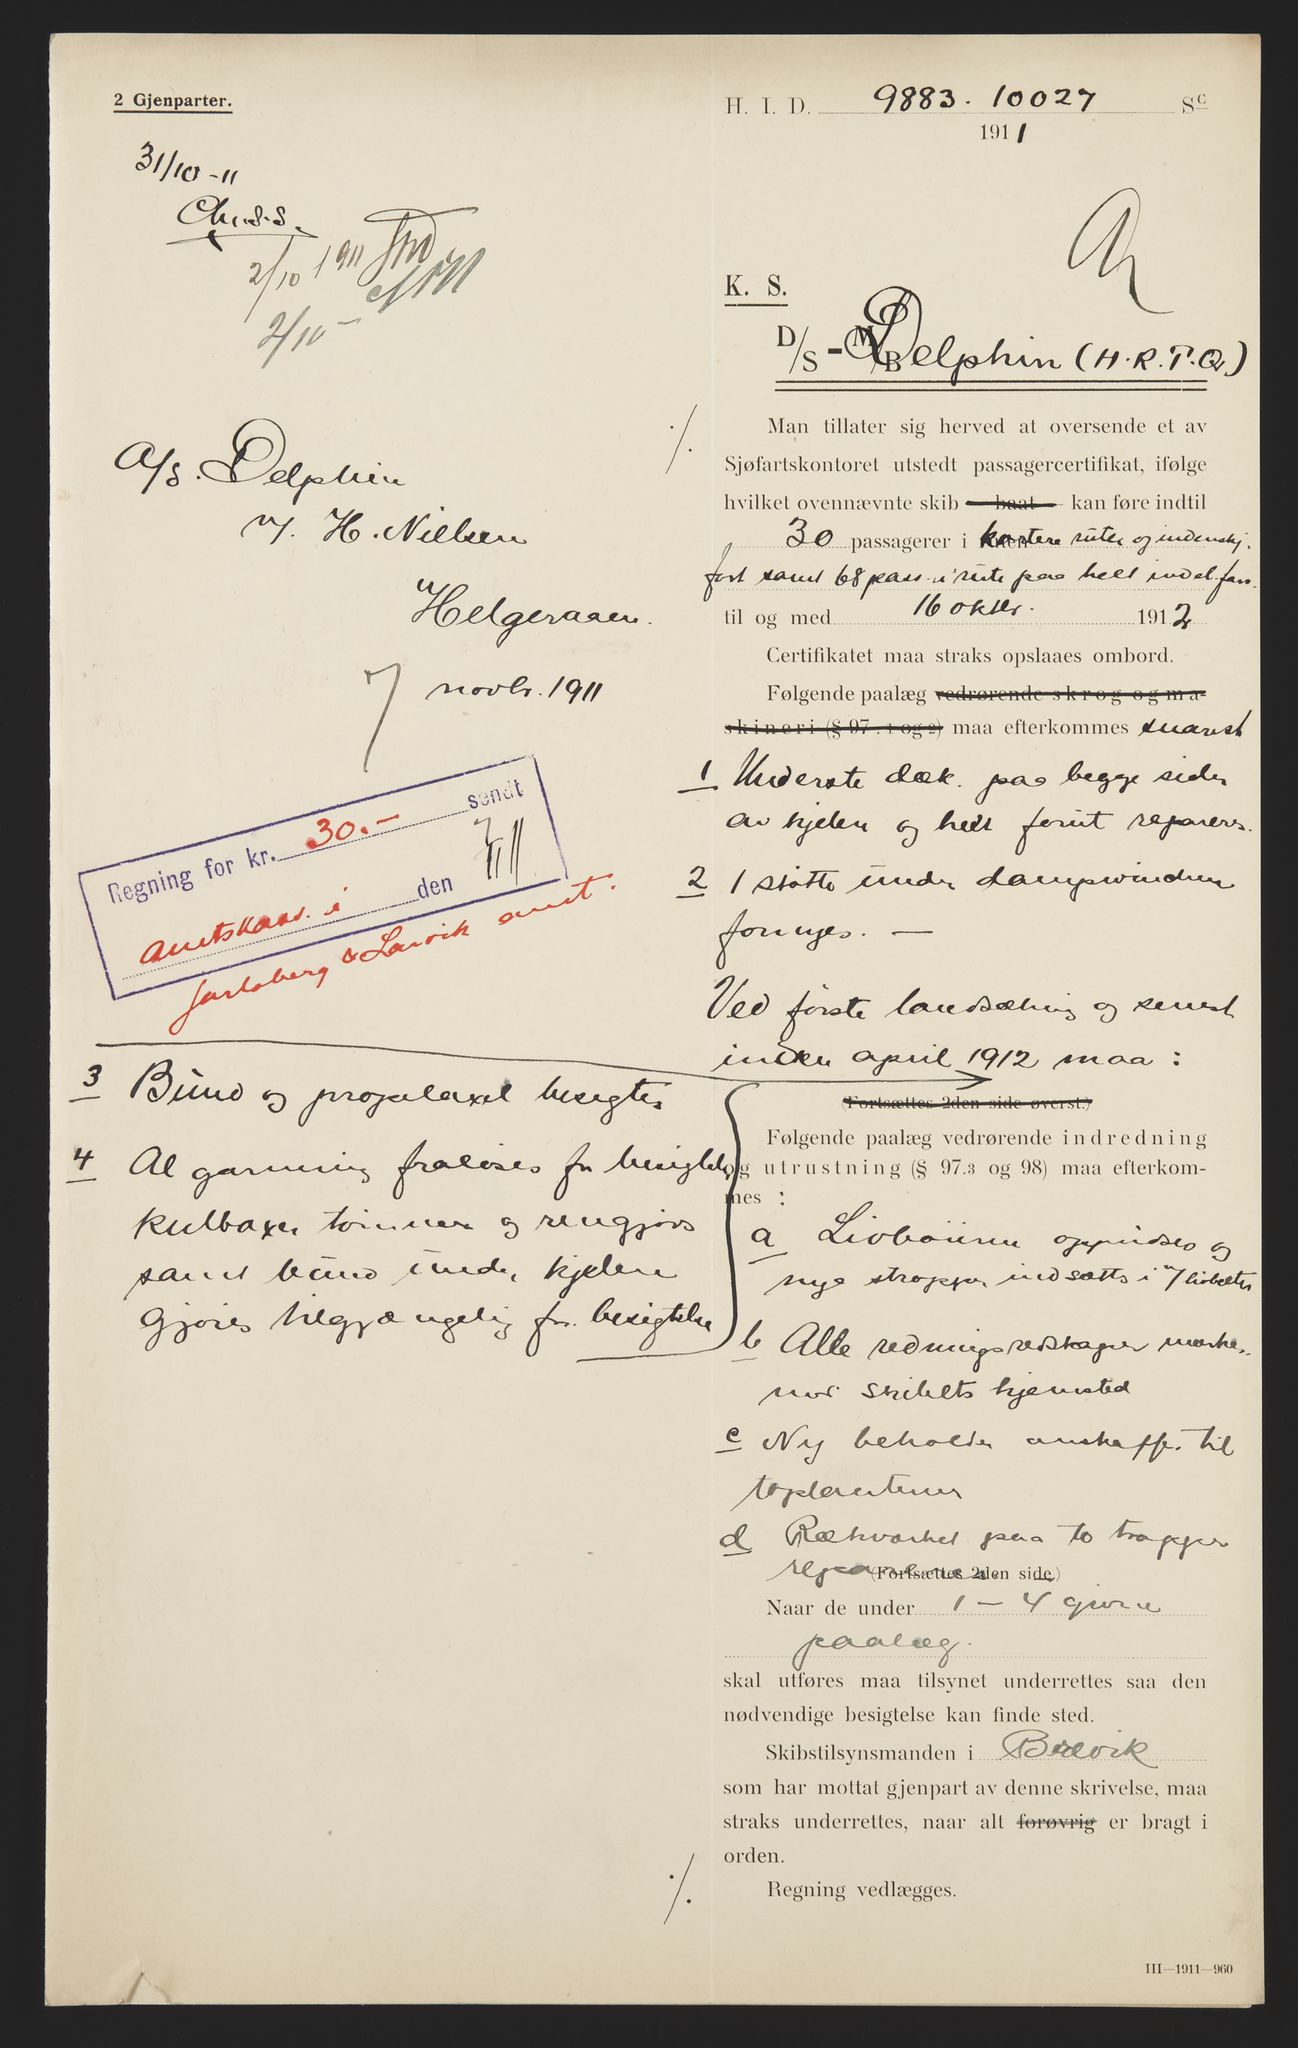 2 Gjenparter.
31/10-11
2/10 1911
2/10 -
A/S. Delphin
v/. H. Nielsen
Helgeraaen.
7 novbr. 1911
Regning for kr. 30.- sendt
amtskass. i den 7/11
Jarlsberg & Larvik amt.
3 Bund og propelaxel besigtes
4 Al garnering fraløses for besigtelse,
kulboxer tømmes og rengjøres
samt bund under kjelen
gjøres tilgjængelig for besigtelse
H. I. D. 9883. 10027 Sc
1911
K. S.
D/S - M/B Delphin (H.R.T.Q.)
Man tillater sig herved at oversende et av
Sjøfartskontoret utstedt passagercertifikat, ifølge
hvilket ovennævnte skib baat kan føre indtil
30 passagerer i kortere ruter og indenskj.
fart samt 68 pass. i rute paa helt indel. farv.
til og med 16 oktbr. 1912
Certifikatet maa straks opslaaes ombord.
Følgende paalæg vedrørende skrog og ma-
skineri (§ 97. 1 og 2) maa efterkommes snarest
1 Underste dæk paa begge sider
av kjelen og helt forut repareres.
2 1 støtte under dampvinchen
fornyes. —
Ved første landsætning og senest
inden april 1912 maa:
(Fortsættes 2den side øverst.)
Følgende paalæg vedrørende indredning
og utrustning (§ 97.3 og 98) maa efterkom-
mes :
a Livbøiene oppudses og
nye stropper indsættes i 7 livbelter
b Alle redningsredskaper merkes
med skibets hjemsted
c Ny beholder anskaffes til
toplanternen
d Rækverket paa to trapper
repareres
(Fortsættes 2den side.)
Naar de under 1 - 4 givne
paalæg.
skal utføres maa tilsynet underrettes saa den
nødvendige besigtelse kan finde sted.
Skibstilsynsmanden i Brevik
som har mottat gjenpart av denne skrivelse, maa
straks underrettes, naar alt forøvrig er bragt i
orden.
Regning vedlægges.
III—1911—960